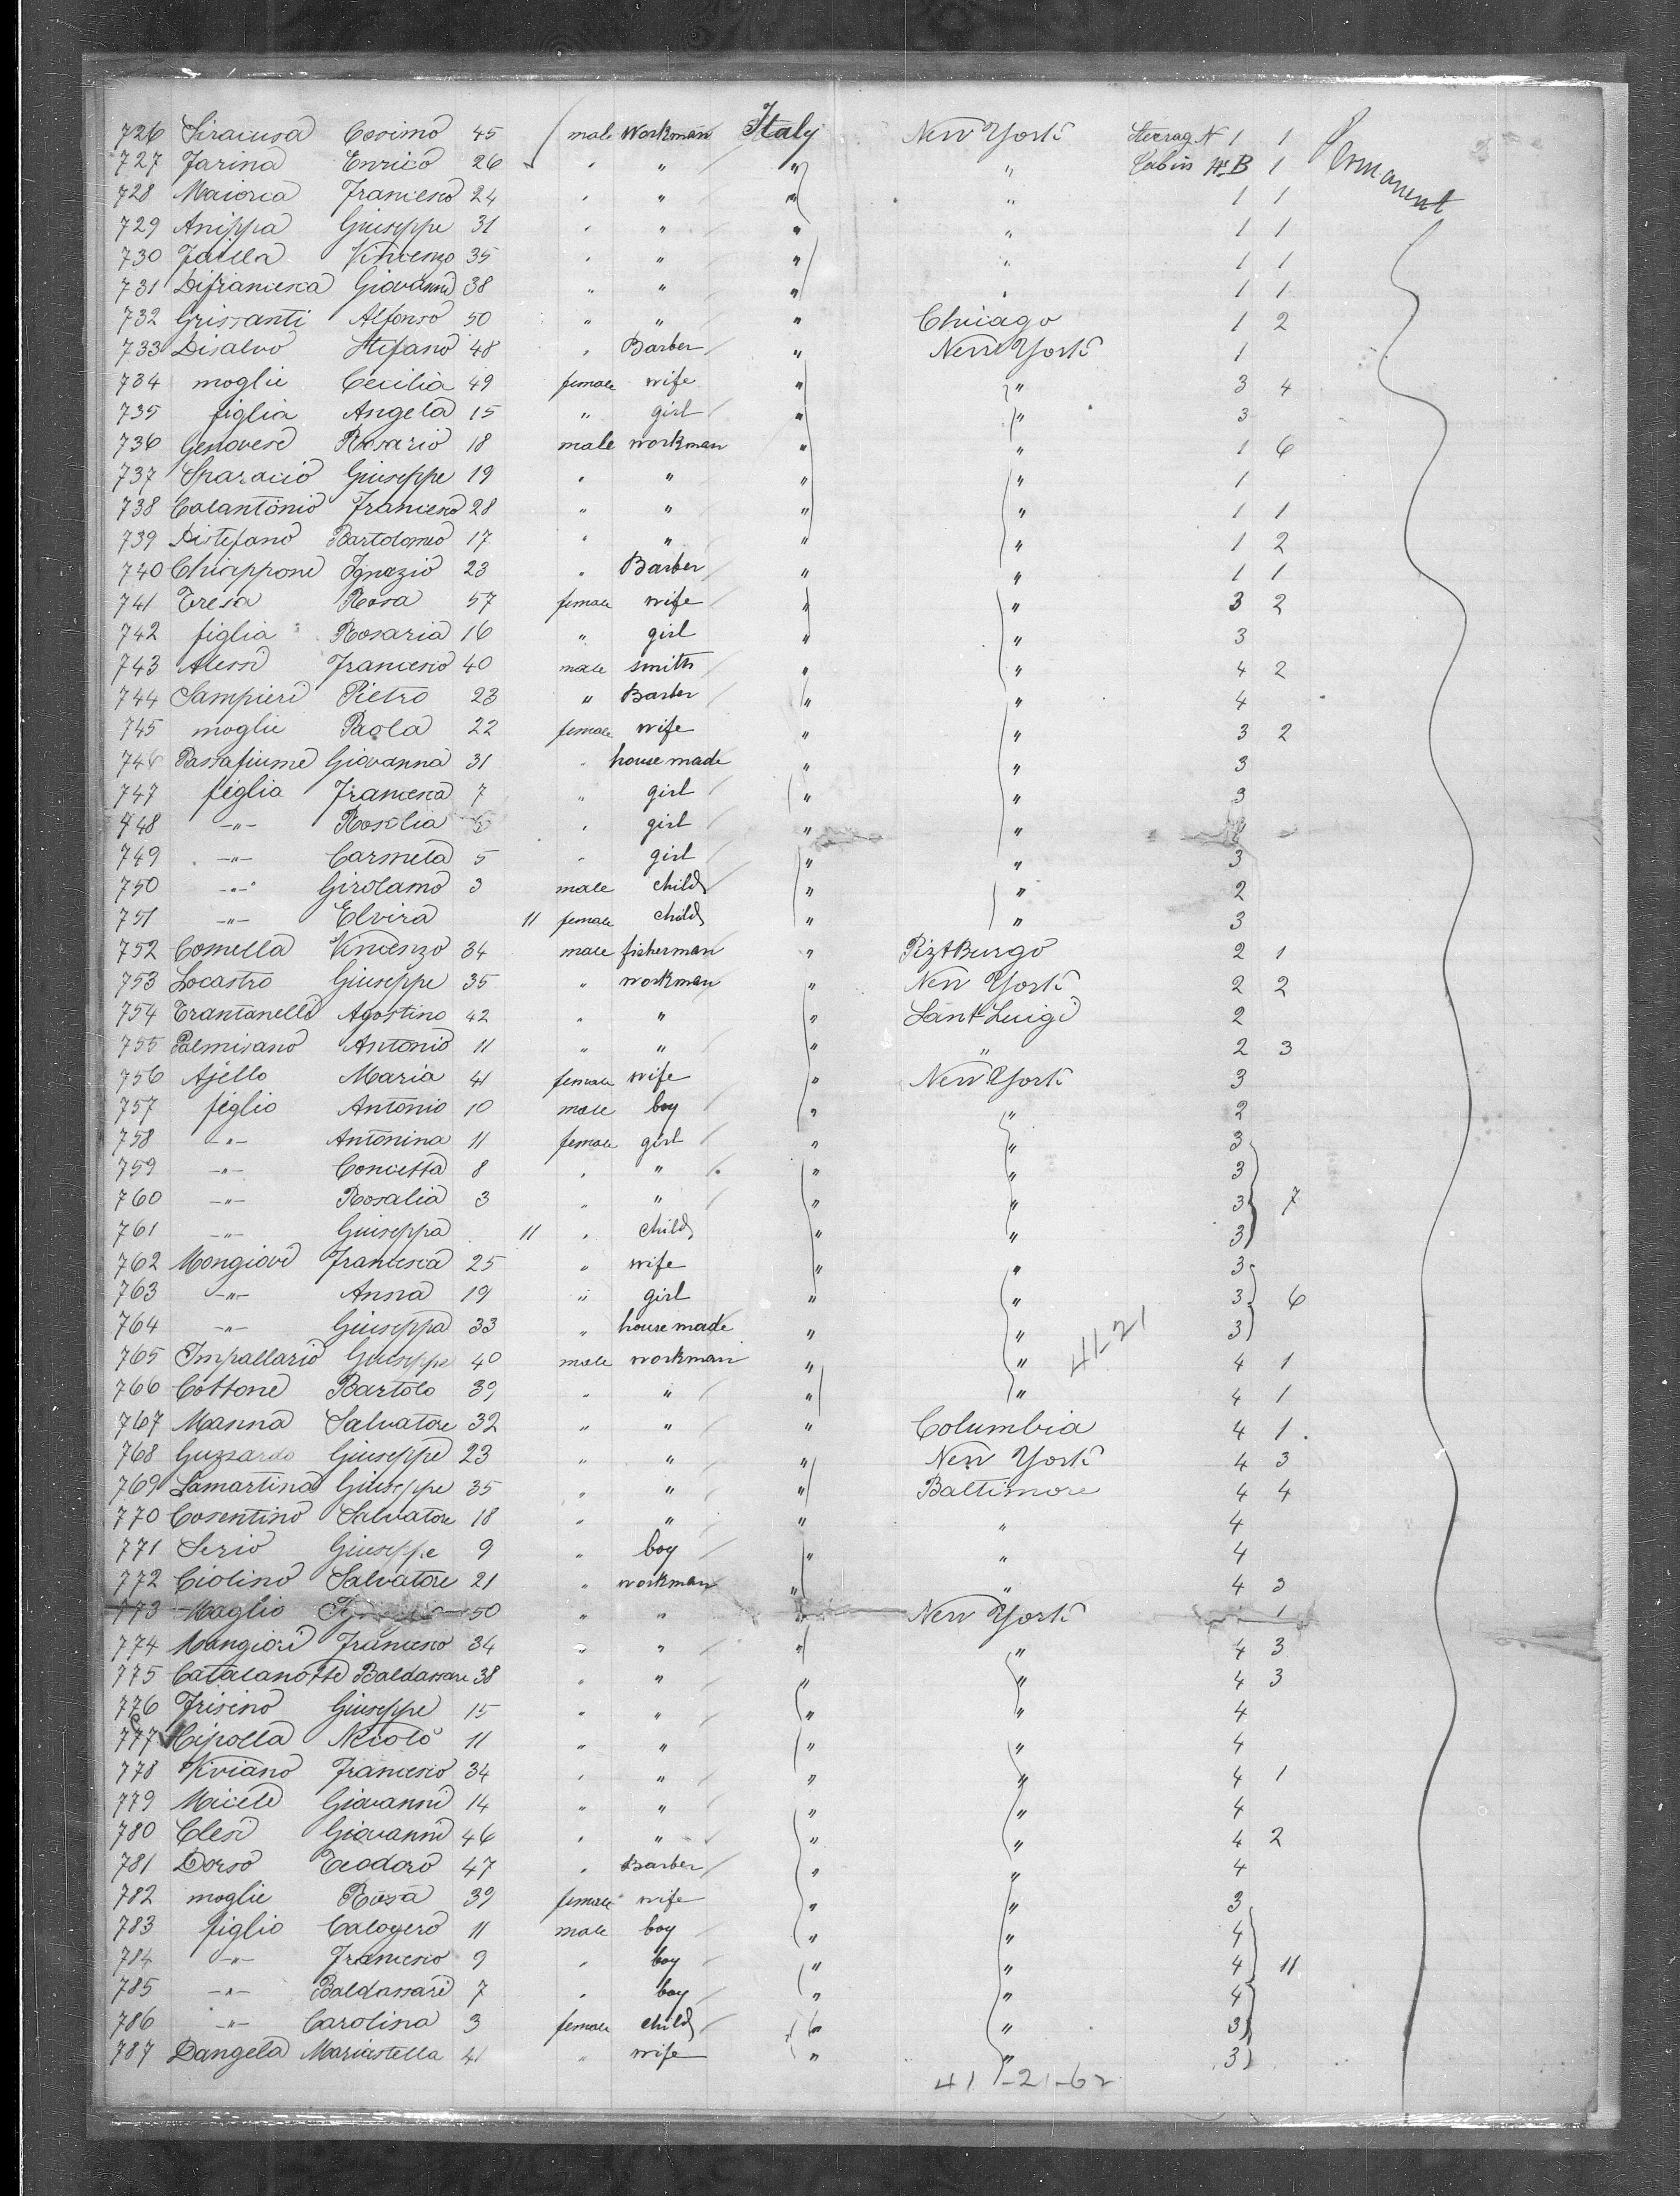 726 Siracusa Cosimo 45 male Workman Italy New York Steerag N 1 1 Permanent
727 Farina Enrico 26 " " " " Cabin No B 1
728 Maiorca Francesco 24 " " " " 1 1
729 Anippa Giuseppe 31 " " " " 1 1
730 Faiella Vincenzo 35 " " " " 1 1
731 Difrancesca Giovanni 38 " " " " 1 1
732 Grissanti Alfonso 50 " " " Chicago 1 2
733 Disalvo Stefano 48 " Barber " New York 1
734 moglie Cecilia 49 female wife " " 3 4
735 figlia Angela 15 " girl " " 3
736 Genovese Rosario 18 male workman " " 1 6
737 Sparacio Giuseppe 19 " " " " 1
738 Calantonio Francesco 28 " " " " 1 1
739 Distefano Bartolomeo 17 " " " " 1 2
740 Chiappone Ignazio 23 " Barber " " 1 1
741 Tresa Rosa 57 female wife " " 3 2
742 figlia Rosaria 16 " girl " " 3
743 Alessi Francesco 40 male smith " " 4 2
744 Sampieri Pietro 23 " Barber " " 4
745 moglie Paola 22 female wife " " 3 2
746 Passafiume Giovanna 31 " house made " " 3
747 figlia Francesca 7 " girl " " 3
748 -"- Rosolia " girl " " 3
749 -"- Carmela 5 " girl " " 3
750 -"- Girolamo 3 male child " " 2
751 -"- Elvira 11 female child " " 3
752 Comella Vincenzo 34 male fisherman " PiztBurgo 2 1
753 Locastro Giuseppe 35 " workman " New York 2 2
754 Trantanelli Agostino 42 " " " Sant Luigi 2
755 Palmisano Antonio 11 " " " " 2 3
756 Ajello Maria 41 female wife " New York 3
757 figlio Antonio 10 male boy " " 2
758 -"- Antonina 11 female girl " " 3
759 -"- Concetta 8 " " " " 3
760 -"- Rosalia 3 " " " " 3 7
761 -"- Giuseppa 11 " child " " 3
762 Mongiovi Francesca 25 " wife " " 3
763 -"- Anna 19 " girl " " 3 6
764 -"- Giuseppa 33 " house made " " 41-21 3
765 Impallario Giuseppe 40 male workman " " 4 1
766 Cottone Bartolo 39 " " " " 4 1
767 Manna Salvatore 32 " " " Columbia 4 1
768 Guzzardo Giuseppe 23 " " " New York 4 3
769 Lamartina Giuseppe 35 " " " Baltimore 4 4
770 Cosentino Salvatore 18 " " " " 4
771 Serio Giuseppe 9 " boy " " 4
772 Ciolino Salvatore 21 " workman " " 4 3
773 Maglio 50 " " " New York 1
774 Mangiori Francesco 34 " " " " 4 3
775 Catalanotte Baldassare 38 " " " " 4 3
776 Frisino Giuseppe 15 " " " " 4
777 Cipolla Nicolò 11 " " " " 4
778 Viviano Francesco 34 " " " " 4 1
779 Miceli Giovanni 14 " " " " 4
780 Clesi Giovanni 46 " " " " 4 2
781 Dorso Teodoro 47 " Barber " " 4
782 moglie Rosa 39 female wife " " 3
783 figlio Calogero 11 male boy " " 4
784 -"- Francesco 9 " boy " " 4 11
785 -"- Baldassari 7 " boy " " 4
786 -"- Carolina 3 female child " " 3
787 Dangela Mariastella 41 " wife " " 3
41-21-62